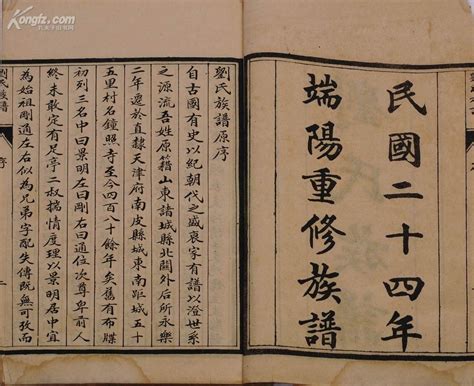 Kongfz.com
孔夫子旧书网
民國二十四年
端陽重修族譜
劉氏族譜原序
自古國有史以紀朝代之盛衰家有譜以澄世系
之源流吾姓原籍山東諸城縣北關外后所永樂
二年遷於直隸天津府南皮縣城東南距城五十
五里村名鐘照寺至今四百八十餘年矣舊有布牒
初列三名中曰景明左曰剛右曰通位次尊卑前人
終未敢定有足亭二叔揣情度理以景明居中宜
為始祖剛通左右似為兄弟字配失傳既無可攷而
劉氏族譜
序